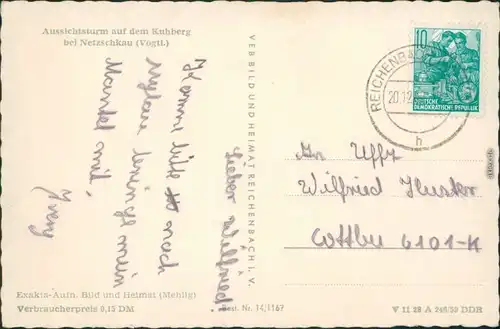 Aussichtsturm auf dem Kuhberg
bei Netzschkau (Vogtl.)
Lieber Wilfried!
Komm bitte noch
bringst mein
Mantel mit.
VEB BILD UND HEIMAT REICHENBACH i. V.
10
DEUTSCHE
DEMOKRATISCHE REPUBLIK
REICHENBACH
20.12
h
An Uffz
Wilfried
Cottbus 6101-K
Exakta-Aufn. Bild und Heimat (Mehlig)
Verbraucherpreis 0,15 DM
Best. Nr. 14/1167
V 11 28 A 246/59 DDR